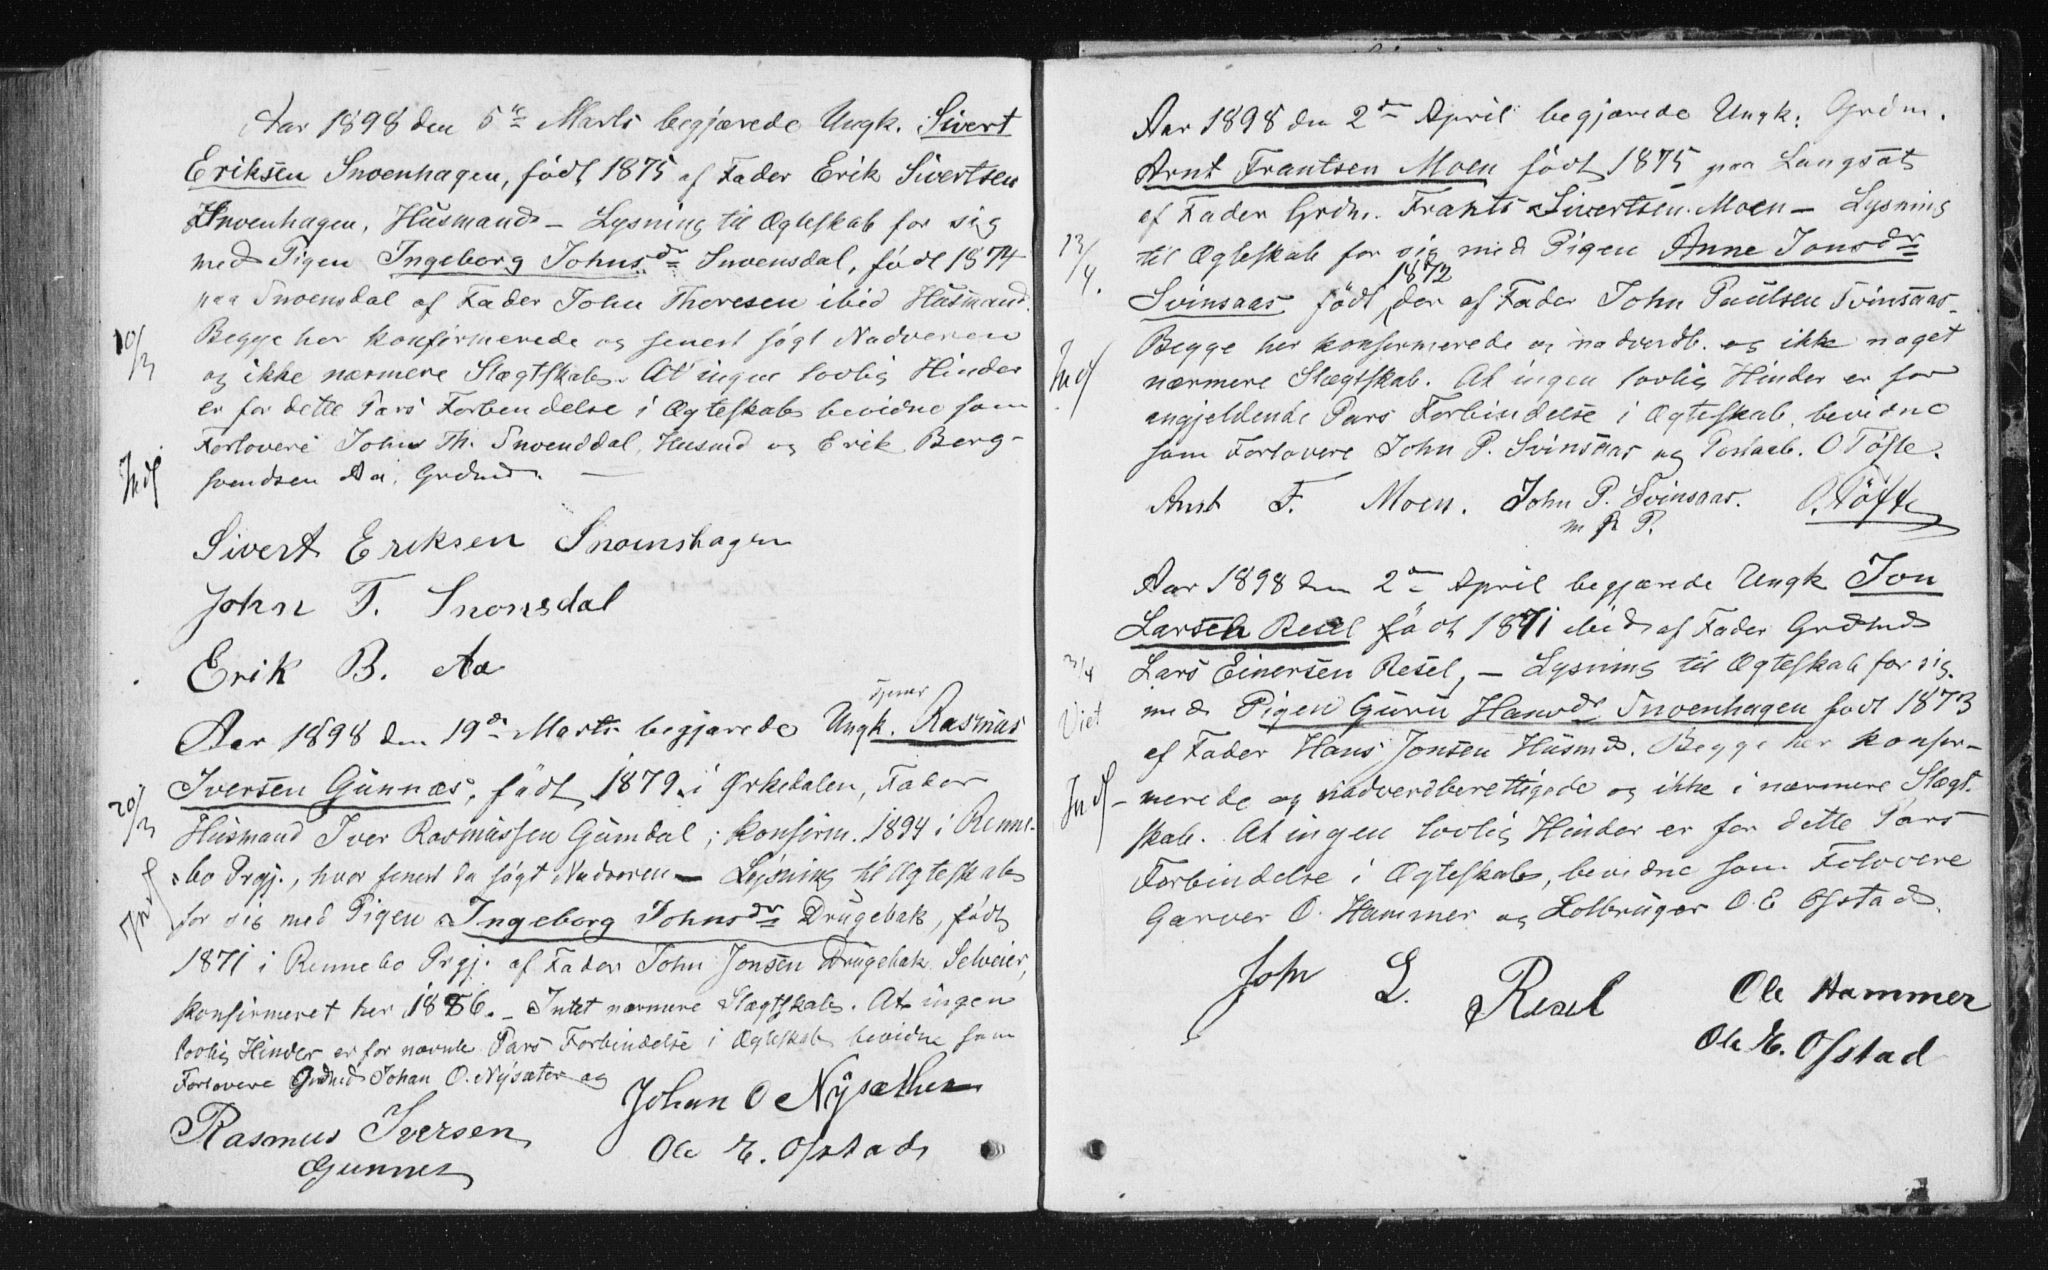 Aar 1898 den 5te Marts begjærede Ungk. Sivert
Eriksen Snoenhagen, født 1875 af Fader Erik Sivertsen
Snoenhagen, Husmand – Lysning til Ægteskab for sig
med Pigen Ingeborg Johnsdr Snoensdal, født 1874
paa Snoensdal af Fader John Thoresen ibid Husmand.
10/3
Begge her konfirmerede og senest søgt Nadveren
og ikke nærmere Slægtskab. At ingen lovlig Hinder
er for dette Pars Forbendelse i Ægteskab bevidne som
Forlovere John Th. Snoenddal, Husmd og Erik Berg-
Indf
svendsen Aa, Grdmd. –
Sivert Eriksen Snoenshagen
John T. Snonsdal
Erik B. Aa
Aar 1898 den 19de Marts begjærede Ungk. Rasmus
20/3
Iversen Gunnæs, født 1879 i Ørkedalen, Fader
Husmand Iver Rasmussen Gumdal; konfirm. 1894 i Renne-
Indf
bo Prgj., hvor senest da søgt Nadveren – Lysning til Ægteskab
for sig med Pigen Ingeborg Johnsdr Drugebak, født
1871 i Rennebo Prgj. af Fader John Jonsen Drugebak Selveier,
konfirmeret her 1886. – Intet nærmere Slægtskab. At ingen
lovlig Hinder er for nævnte Pars Forbindelse i Ægteskab bevidne som
Forlovere Grdmd Johan O. Nysæter og
Johan O Nysæther
Rasmus Iversen
Ole E. Ofstad
Gunnes
Aar 1898 den 2den April begjærede Ungk: Grdm.
Arnt Frantsen Moen født 1875 paa Langsæt
af Fader Grdm. Frants Sivertsen Moen – Lysning
13/4.
til Ægteskab for sig med Pigen Anne Jonsdr
1872
Svinsaas født der af Fader John Paulsen Svinsaas.
Begge her konfirmerede og nadverdb. og ikke noget
Indf
nærmere Slægtskab. At ingen lovlig Hinder er for
angjeldende Pars Forbindelse i Ægteskab, bevidne
som Forlovere John P. Svinsaas og O Tøfte.
Arnt F. Moen. John P. Svinsaas. O. Tøfte
m p P.
Aar 1898 den 2den April begjærede Ungk Jon
Larsen Resel født 1871 ibid af Fader Grdmd
3/4
Lars Einersen Resel, – Lysning til Ægteskab for sig
Viet
med Pigen Guru Hansdr Snoenhagen født 1873
af Fader Hans Jonsen Husmd. Begge her konfir-
Indf
merede og nadverdberettigede og ikke i nærmere Slægt-
skab. At ingen lovlig Hinder er for dette Pars
Forbindelse i Ægteskab, bevidne som Folovere
Garver O. Hammer og Lolbruger O. E Ofstad.
John L. Resel
Ole Hammer
Ole E. Ofstad